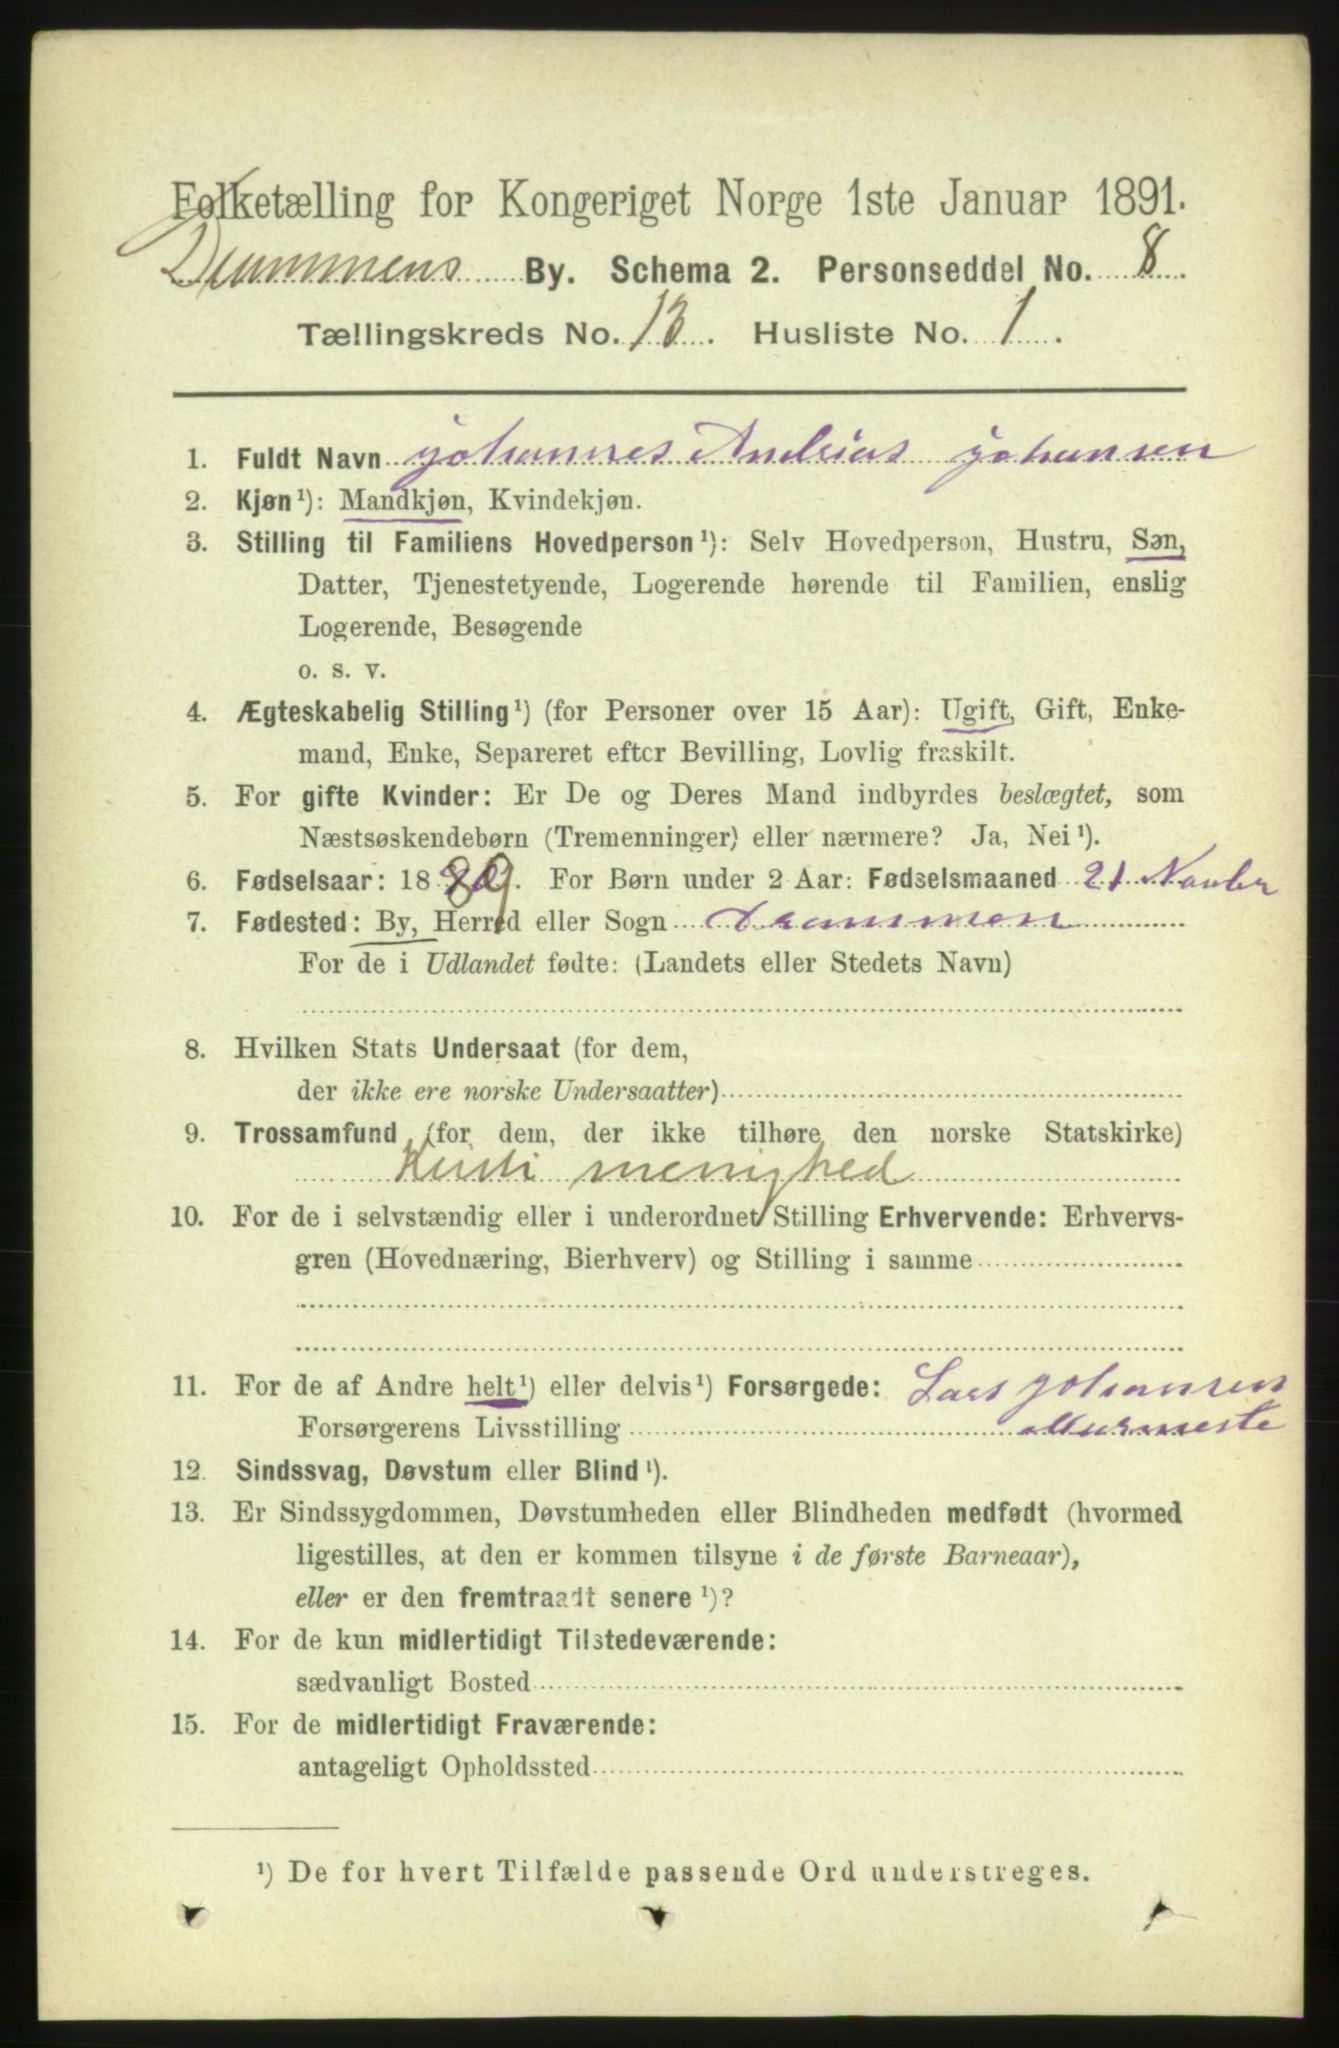 Folketælling for Kongeriget Norge 1ste Januar 1891.
Drammens By. Schema 2. Personseddel No. 8
Tællingskreds No. 13. Husliste No. 1.
1. Fuldt Navn Johannes Andreas Johansen
2. Kjøn ¹): Mandkjøn, Kvindekjøn.
3. Stilling til Familiens Hovedperson ¹): Selv Hovedperson, Hustru, Søn,
Datter, Tjenestetyende, Logerende hørende til Familien, enslig
Logerende, Besøgende
o. s. v.
4. Ægteskabelig Stilling ¹) (for Personer over 15 Aar): Ugift, Gift, Enke-
mand, Enke, Separeret efter Bevilling, Lovlig fraskilt.
5. For gifte Kvinder: Er De og Deres Mand indbyrdes beslægtet, som
Næstsøskendebørn (Tremenninger) eller nærmere? Ja, Nei ¹).
6. Fødselsaar: 1889. For Børn under 2 Aar: Fødselsmaaned 21 Novbr
7. Fødested: By, Herred eller Sogn Drammen
For de i Udlandet fødte: (Landets eller Stedets Navn)
8. Hvilken Stats Undersaat (for dem,
der ikke ere norske Undersaatter)
9. Trossamfund (for dem, der ikke tilhøre den norske Statskirke)
Kristi menighed
10. For de i selvstændig eller i underordnet Stilling Erhvervende: Erhvervs-
gren (Hovednæring, Bierhverv) og Stilling i samme
11. For de af Andre helt ¹) eller delvis ¹) Forsørgede: Lars Johansen
Forsørgerens Livsstilling Murmeste
12. Sindssvag, Døvstum eller Blind ¹).
13. Er Sindssygdommen, Døvstumheden eller Blindheden medfødt (hvormed
ligestilles, at den er kommen tilsyne i de første Barneaar),
eller er den fremtraadt senere ¹)?
14. For de kun midlertidigt Tilstedeværende:
sædvanligt Bosted
15. For de midlertidigt Fraværende:
antageligt Opholdssted
¹) De for hvert Tilfælde passende Ord understreges.